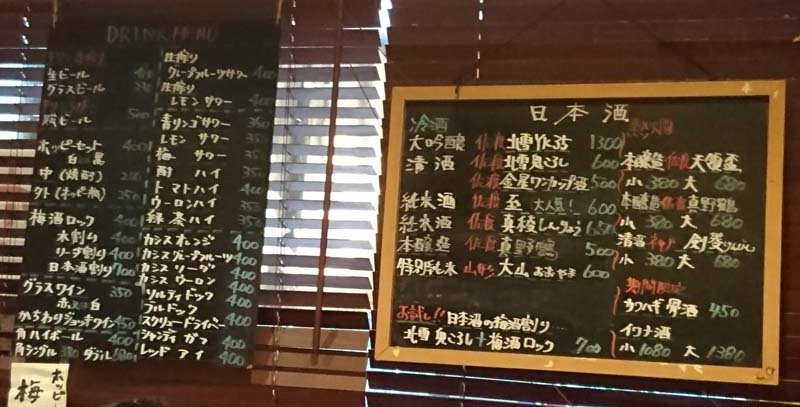 DRINK MENU
生ビール
グラスビール
瓶ビール 500
ホッピーセット 400
白 黒
中(焼酎) 250
外(ホッピー瓶) 350
梅酒ロック 400
水割り 400
ソーダ割り 400
日本酒割り 700
グラスワイン 350
赤 白
かちわりジョッキワイン 450
角ハイボール 400
角シングル 380 ダブル
生搾り
グレープフルーツサワー 400
生搾り
レモンサワー 400
青リンゴサワー 350
レモン サワー 350
梅 サワー 350
酎 ハイ
トマトハイ 400
ウーロンハイ 350
緑茶ハイ 350
カシスオレンジ 400
カシスグレープフルーツ 400
カシスソーダ 400
カシスウーロン 400
ソルティドッグ 400
ブルドッグ 400
スクリュードライバー 400
シャンディガフ 400
レッド アイ 400
ホッピー
梅
日本酒
冷酒
大吟醸 佐渡 北雪YK35 1300
清酒 佐渡 北雪鬼ころし 600
佐渡 金屋ワンカップ酒 500
純米酒 佐渡 至 大人気! 600
純米酒 佐渡 真稜しんりょう 650
本醸造 佐渡 真野鶴 500
特別純米 山形 大山おおやま 600
お試し!! 日本酒の梅酒割り
北雪 鬼ころし+梅酒ロック 700
熱燗
本醸造 佐渡 天領盃
小 380 大 680
本醸造 佐渡 真野鶴
小 380 大 680
清酒 剣菱けんびし
小 380 大 680
期間限定
カワハギ骨酒 450
イワナ酒
小 1080 大 1380